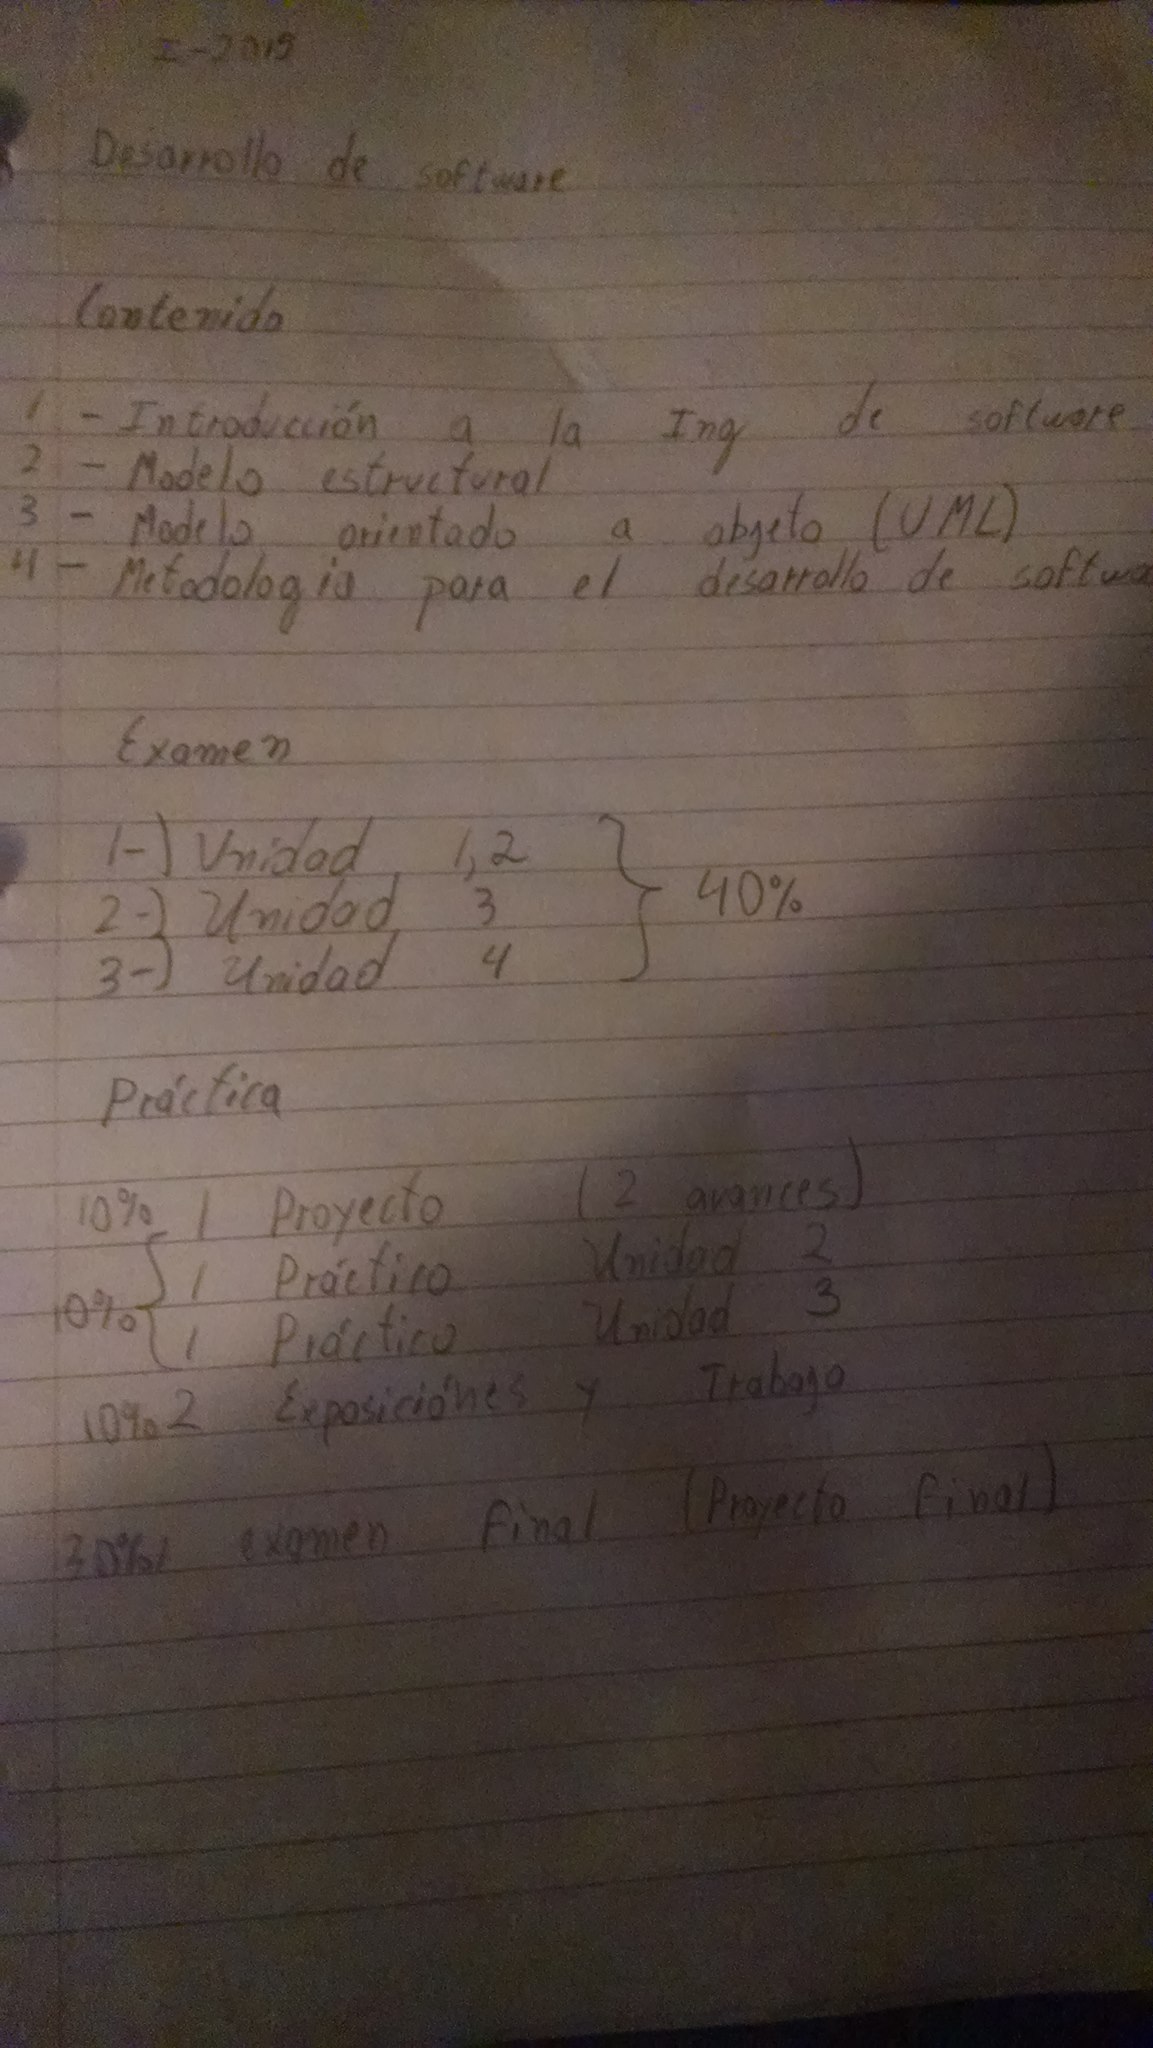 I-2019
Desarrollo de software
Contenido
1 - Introducción a la Ing de software
2 - Modelo estructural
3 - Modelo orientado a objeto (UML)
4 - Metodologia para el desarrollo de softwa
Examen
1-) Unidad 1,2
2-) Unidad 3 40%
3-) Unidad 4
Práctica
10% 1 Proyecto (2 avances)
1 Práctico Unidad 2
10%
1 Práctico Unidad 3
10% 2 Exposiciónes y Trabajo
30% 1 examen final (Proyecto final)